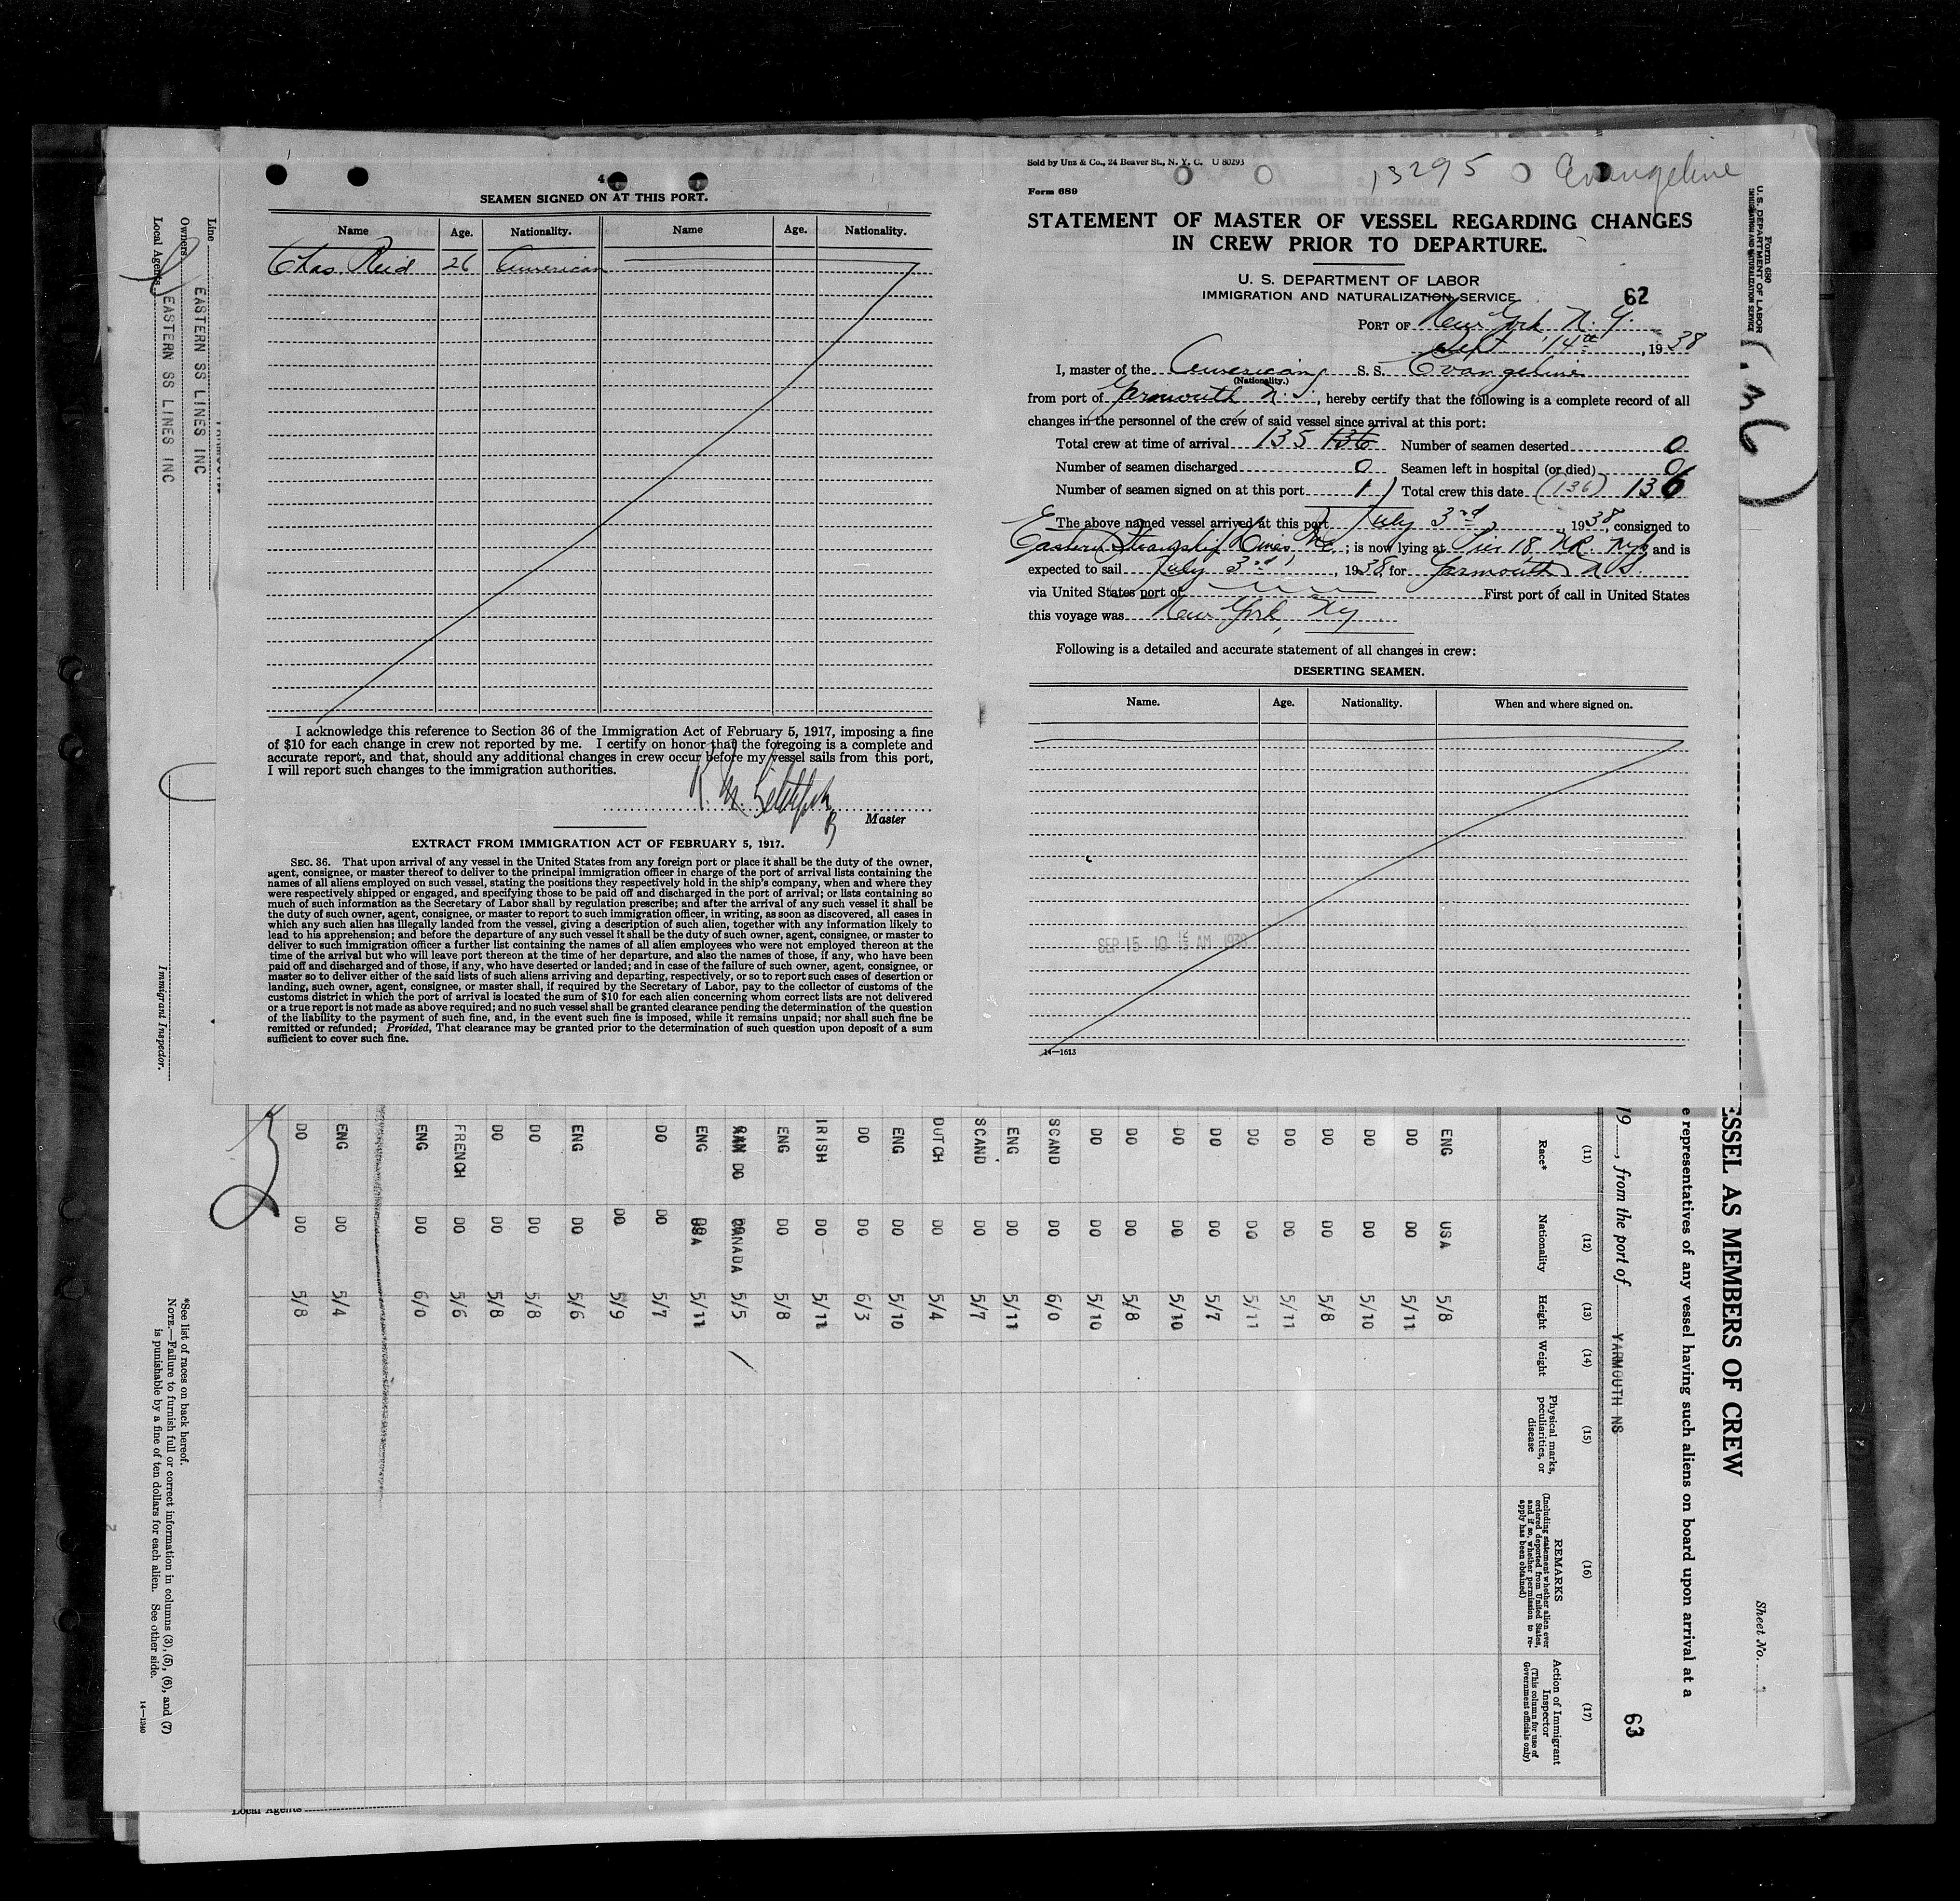 4
SEAMEN SIGNED ON AT THIS PORT.
Name Age. Nationality. Name Age. Nationality.
Chas. Reid 26 American
I acknowledge this reference to Section 36 of the Immigration Act of February 5, 1917, imposing a fine
of $10 for each change in crew not reported by me. I certify on honor that the foregoing is a complete and
accurate report, and that, should any additional changes in crew occur before my vessel sails from this port,
I will report such changes to the immigration authorities.
Master
EXTRACT FROM IMMIGRATION ACT OF FEBRUARY 5, 1917.
SEC. 36. That upon arrival of any vessel in the United States from any foreign port or place it shall be the duty of the owner,
agent, consignee, or master thereof to deliver to the principal immigration officer in charge of the port of arrival lists containing the
names of all aliens employed on such vessel, stating the positions they respectively hold in the ship's company, when and where they
were respectively shipped or engaged, and specifying those to be paid off and discharged in the port of arrival; or lists containing so
much of such information as the Secretary of Labor shall by regulation prescribe; and after the arrival of any such vessel it shall be
the duty of such owner, agent, consignee, or master to report to such immigration officer, in writing, as soon as discovered, all cases in
which any such alien has illegally landed from the vessel, giving a description of such alien, together with any information likely to
lead to his apprehension; and before the departure of any such vessel it shall be the duty of such owner, agent, consignee, or master to
deliver to such immigration officer a further list containing the names of all alien employees who were not employed thereon at the
time of the arrival but who will leave port thereon at the time of her departure, and also the names of those, if any, who have been
paid off and discharged and of those, if any, who have deserted or landed; and in case of the failure of such owner, agent, consignee, or
master so to deliver either of the said lists of such aliens arriving and departing, respectively, or so to report such cases of desertion or
landing, such owner, agent, consignee, or master shall, if required by the Secretary of Labor, pay to the collector of customs of the
customs district in which the port of arrival is located the sum of $10 for each alien concerning whom correct lists are not delivered
or a true report is not made as above required; and no such vessel shall be granted clearance pending the determination of the question
of the liability to the payment of such fine, and, in the event such fine is imposed, while it remains unpaid; nor shall such fine be
remitted or refunded; Provided, That clearance may be granted prior to the determination of such question upon deposit of a sum
sufficient to cover such fine.
Sold by Unz & Co., 24 Beaver St., N. Y. C. U 80293
13295 Evangeline
Form 689
STATEMENT OF MASTER OF VESSEL REGARDING CHANGES
IN CREW PRIOR TO DEPARTURE.
U. S. DEPARTMENT OF LABOR
IMMIGRATION AND NATURALIZATION SERVICE
62
PORT OF New York N. Y.
Sept 14th, 1938
I, master of the American S. S. Evangeline
(Nationality.)
from port of Yarmouth N. S., hereby certify that the following is a complete record of all
changes in the personnel of the crew of said vessel since arrival at this port:
Total crew at time of arrival 135 136 Number of seamen deserted 0
Number of seamen discharged 0 Seamen left in hospital (or died) 0
Number of seamen signed on at this port 1 Total crew this date (136) 136
The above named vessel arrived at this port July 3rd, 1938, consigned to
Eastern Steamship Lines Inc; is now lying at Pier 18 N.R. NY and is
expected to sail July 3rd, 1938, for Yarmouth N S
via United States port of First port of call in United States
this voyage was New York, NY
Following is a detailed and accurate statement of all changes in crew:
DESERTING SEAMEN.
Name. Age. Nationality. When and where signed on.
SEP 15 10 15 AM 1938
14—1613
Form 680
U. S. DEPARTMENT OF LABOR
IMMIGRATION AND NATURALIZATION SERVICE
Sheet No.
ESSEL AS MEMBERS OF CREW
e representatives of any vessel having such aliens on board upon arrival at a
19, from the port of YARMOUTH NS
63
(11) (12) (13) (14) (15) (16) (17)
Race* Nationality Height Weight Physical marks, peculiarities, or disease REMARKS (Including statement whether alien ever ordered deported from United States, and if so, whether permission to reapply has been obtained) Action of Immigrant Inspector (This column for use of Government officials only)
ENG USA 5/8
DO DO 5/11
DO DO 5/10
DO DO 5/8
DO DO 5/11
DO DO 5/11
DO DO 5/7
DO DO 5/10
DO DO 5/8
DO DO 5/10
SCAND DO 6/0
ENG DO 5/11
SCAND DO 5/7
DUTCH DO 5/4
ENG DO 5/10
DO DO 6/3
IRISH DO 5/11
ENG DO 5/8
DO CANADA 5/5
ENG USA 5/11
DO DO 5/7
DO 5/9
ENG DO 5/6
DO DO 5/8
DO DO 5/8
FRENCH DO 5/6
ENG DO 6/0
ENG DO 5/4
DO DO 5/8
Line
Owners EASTERN SS LINES INC
Local Agents EASTERN SS LINES INC
Immigrant Inspector.
*See list of races on back hereof.
NOTE.—Failure to furnish full or correct information in columns (3), (5), (6), and (7)
is punishable by a fine of ten dollars for each alien. See other side.
14—1240
Local Agents